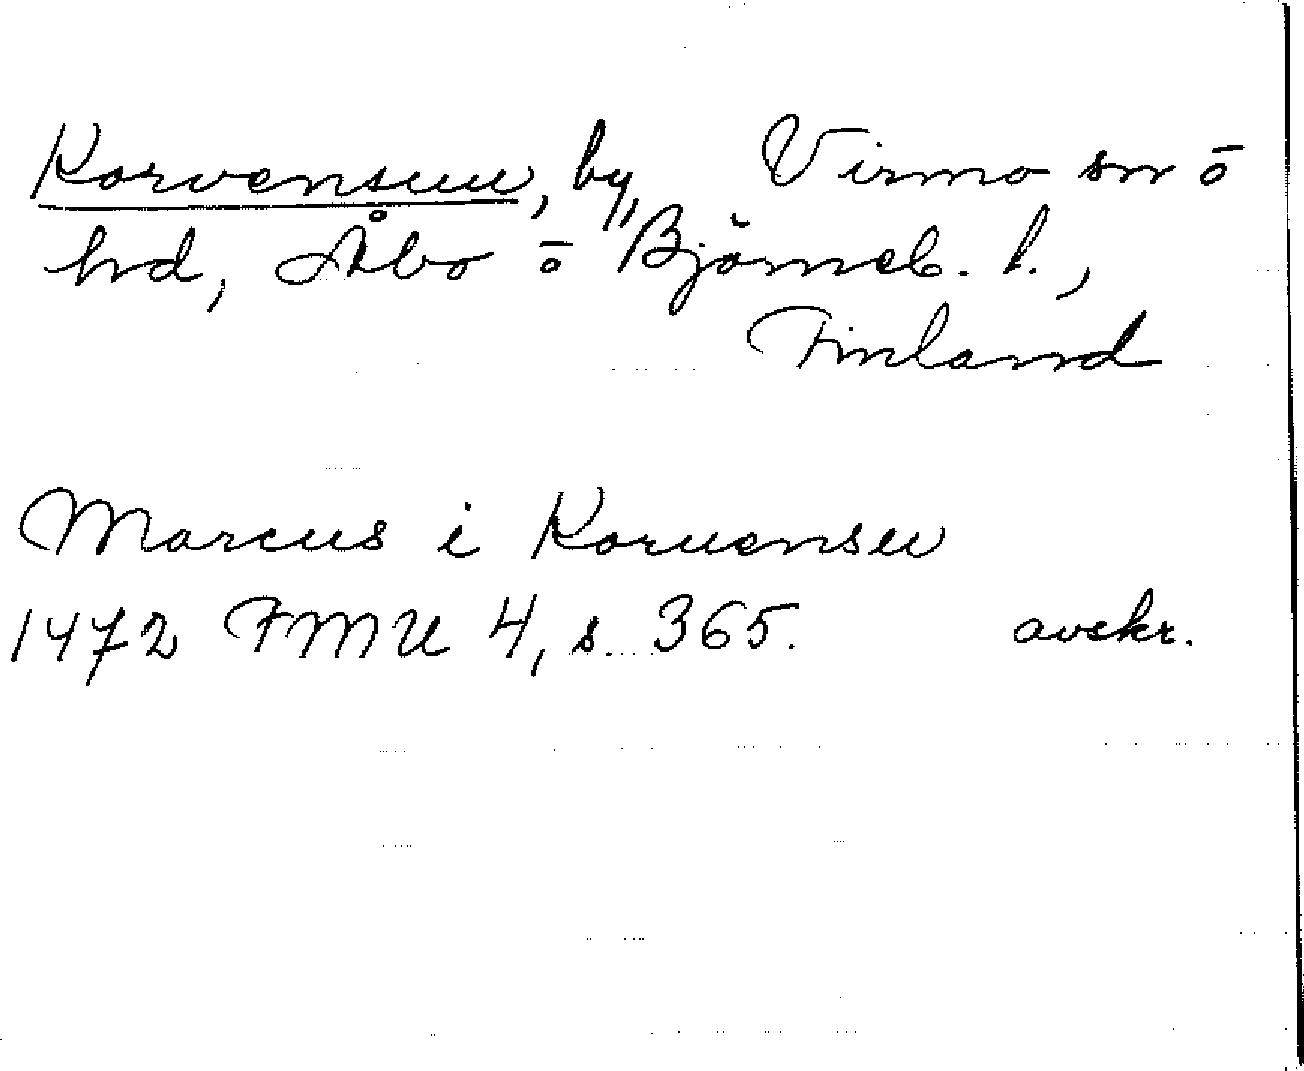 Korvensuu, by, Virmo sn ō
hd, Åbo ō Björneb. l.,
Finland
Marcus i Koruensu
1472 FMU 4, s. 365. avskr.